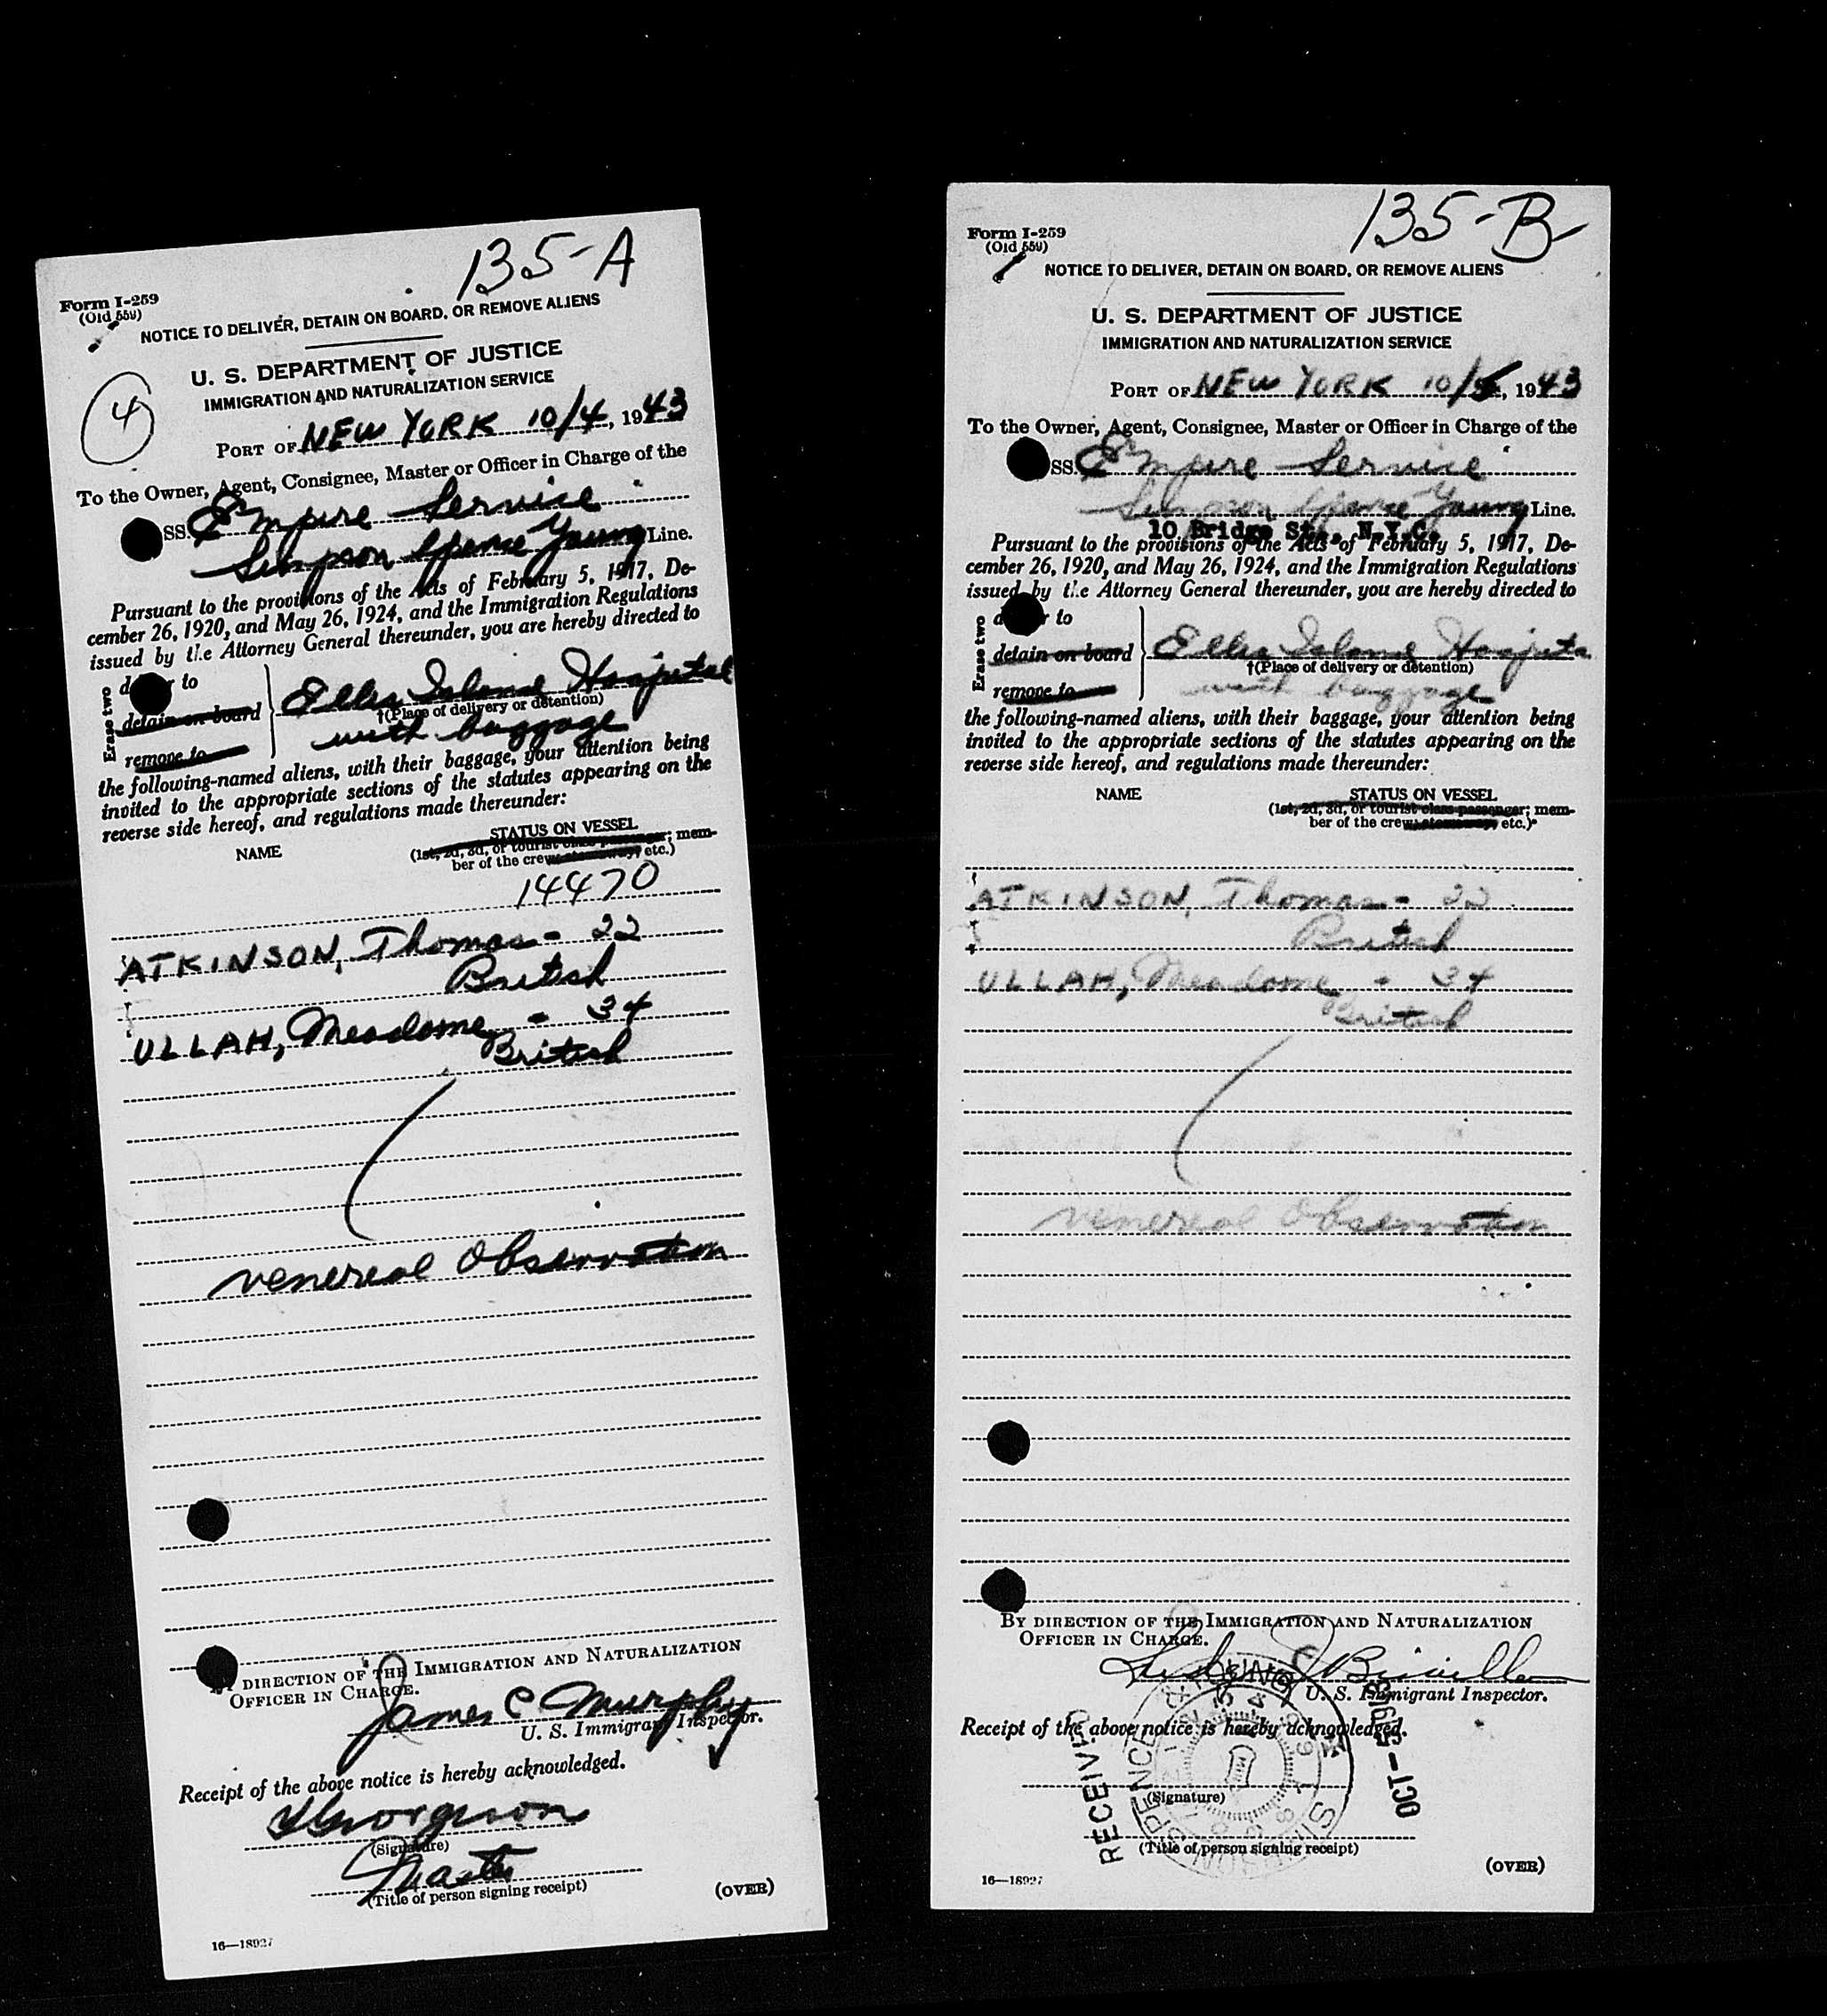 135-A
Form I-259
(Old 559)
NOTICE TO DELIVER, DETAIN ON BOARD, OR REMOVE ALIENS
U. S. DEPARTMENT OF JUSTICE
IMMIGRATION AND NATURALIZATION SERVICE
4
PORT OF NEW YORK 10/4, 1943
To the Owner, Agent, Consignee, Master or Officer in Charge of the
SS. Empire Service
Simpson Spence Young Line.
Pursuant to the provisions of the Acts of February 5, 1917, De-
cember 26, 1920, and May 26, 1924, and the Immigration Regulations
issued by the Attorney General thereunder, you are hereby directed to
Erase two
d r to
detain on board
remove to
Ellis Island Hospital
†(Place of delivery or detention)
with baggage
the following-named aliens, with their baggage, your attention being
invited to the appropriate sections of the statutes appearing on the
reverse side hereof, and regulations made thereunder:
NAME
STATUS ON VESSEL
(1st, 2d, 3d, or tourist class passenger; mem-
ber of the crew, stowaway, etc.)
14470
ATKINSON, Thomas - 22
British
ULLAH, Meadome - 34
British
venereal Observation
BY DIRECTION OF THE IMMIGRATION AND NATURALIZATION
OFFICER IN CHARGE.
James C Murphy
U. S. Immigrant Inspector.
Receipt of the above notice is hereby acknowledged.
(Signature)
Master
(Title of person signing receipt)
(OVER)
16—18927
135-B
Form I-259
(Old 559)
NOTICE TO DELIVER, DETAIN ON BOARD, OR REMOVE ALIENS
U. S. DEPARTMENT OF JUSTICE
IMMIGRATION AND NATURALIZATION SERVICE
PORT OF NEW YORK 10/5, 1943
To the Owner, Agent, Consignee, Master or Officer in Charge of the
SS. Empire Service
Simpson Spence Young Line.
10 Bridge St., N.Y.C.
Pursuant to the provisions of the Acts of February 5, 1917, De-
cember 26, 1920, and May 26, 1924, and the Immigration Regulations
issued by the Attorney General thereunder, you are hereby directed to
Erase two
d r to
detain on board
remove to
Ellis Island Hospita
†(Place of delivery or detention)
with baggage
the following-named aliens, with their baggage, your attention being
invited to the appropriate sections of the statutes appearing on the
reverse side hereof, and regulations made thereunder:
NAME
STATUS ON VESSEL
(1st, 2d, 3d, or tourist class passenger; mem-
ber of the crew, stowaway, etc.)
ATKINSON, Thomas - 22
British
ULLAH, Meadome - 34
British
venereal Observation
BY DIRECTION OF THE IMMIGRATION AND NATURALIZATION
OFFICER IN CHARGE.
U. S. Immigrant Inspector.
Receipt of the above notice is hereby acknowledged.
RECEIVED
OCT-5 1943
SIMPSON, SPENCE & YOUNG
(Signature)
(Title of person signing receipt)
(OVER)
16—18927